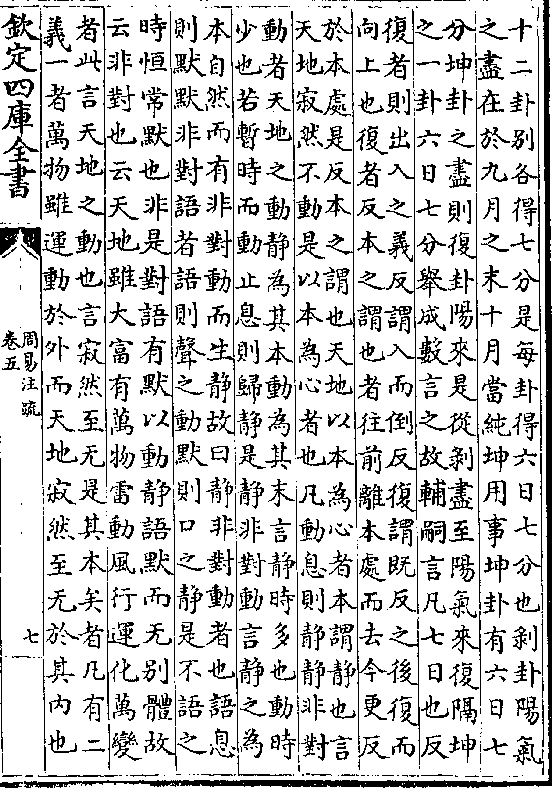 十二卦别各得七分是每卦得六日七分也剥卦陽氣
之盡在於九月之末十月當純坤用事坤卦有六日七
分坤卦之盡則復卦陽來是從剥盡至陽氣來復隔坤
之一卦六日七分舉成數言之故輔嗣言凡七日也反
復者則出入之義反謂入而倒反復謂既反之後復而
向上也復者反本之謂也者往前離本處而去今更反
於本處是反本之謂也天地以本為心者本謂静也言
天地寂然不動是以本為心者也凡動息則静静非對
動者天地之動静為其本動為其末言静時多也動時
少也若暫時而動止息則歸静是静非對動言静之為
本自然而有非對動而生静故曰静非對動者也語息
則默默非對語者語則聲之動默則口之静是不語之
時恒常默也非是對語有默以動静語默而无别體故
云非對也云天地雖大富有萬物雷動風行運化萬變
者此言天地之動也言寂然至无是其本矣者凡有二
義一者萬物雖運動於外而天地寂然至无於其内也
欽定四庫全書
周易注疏
卷五
七